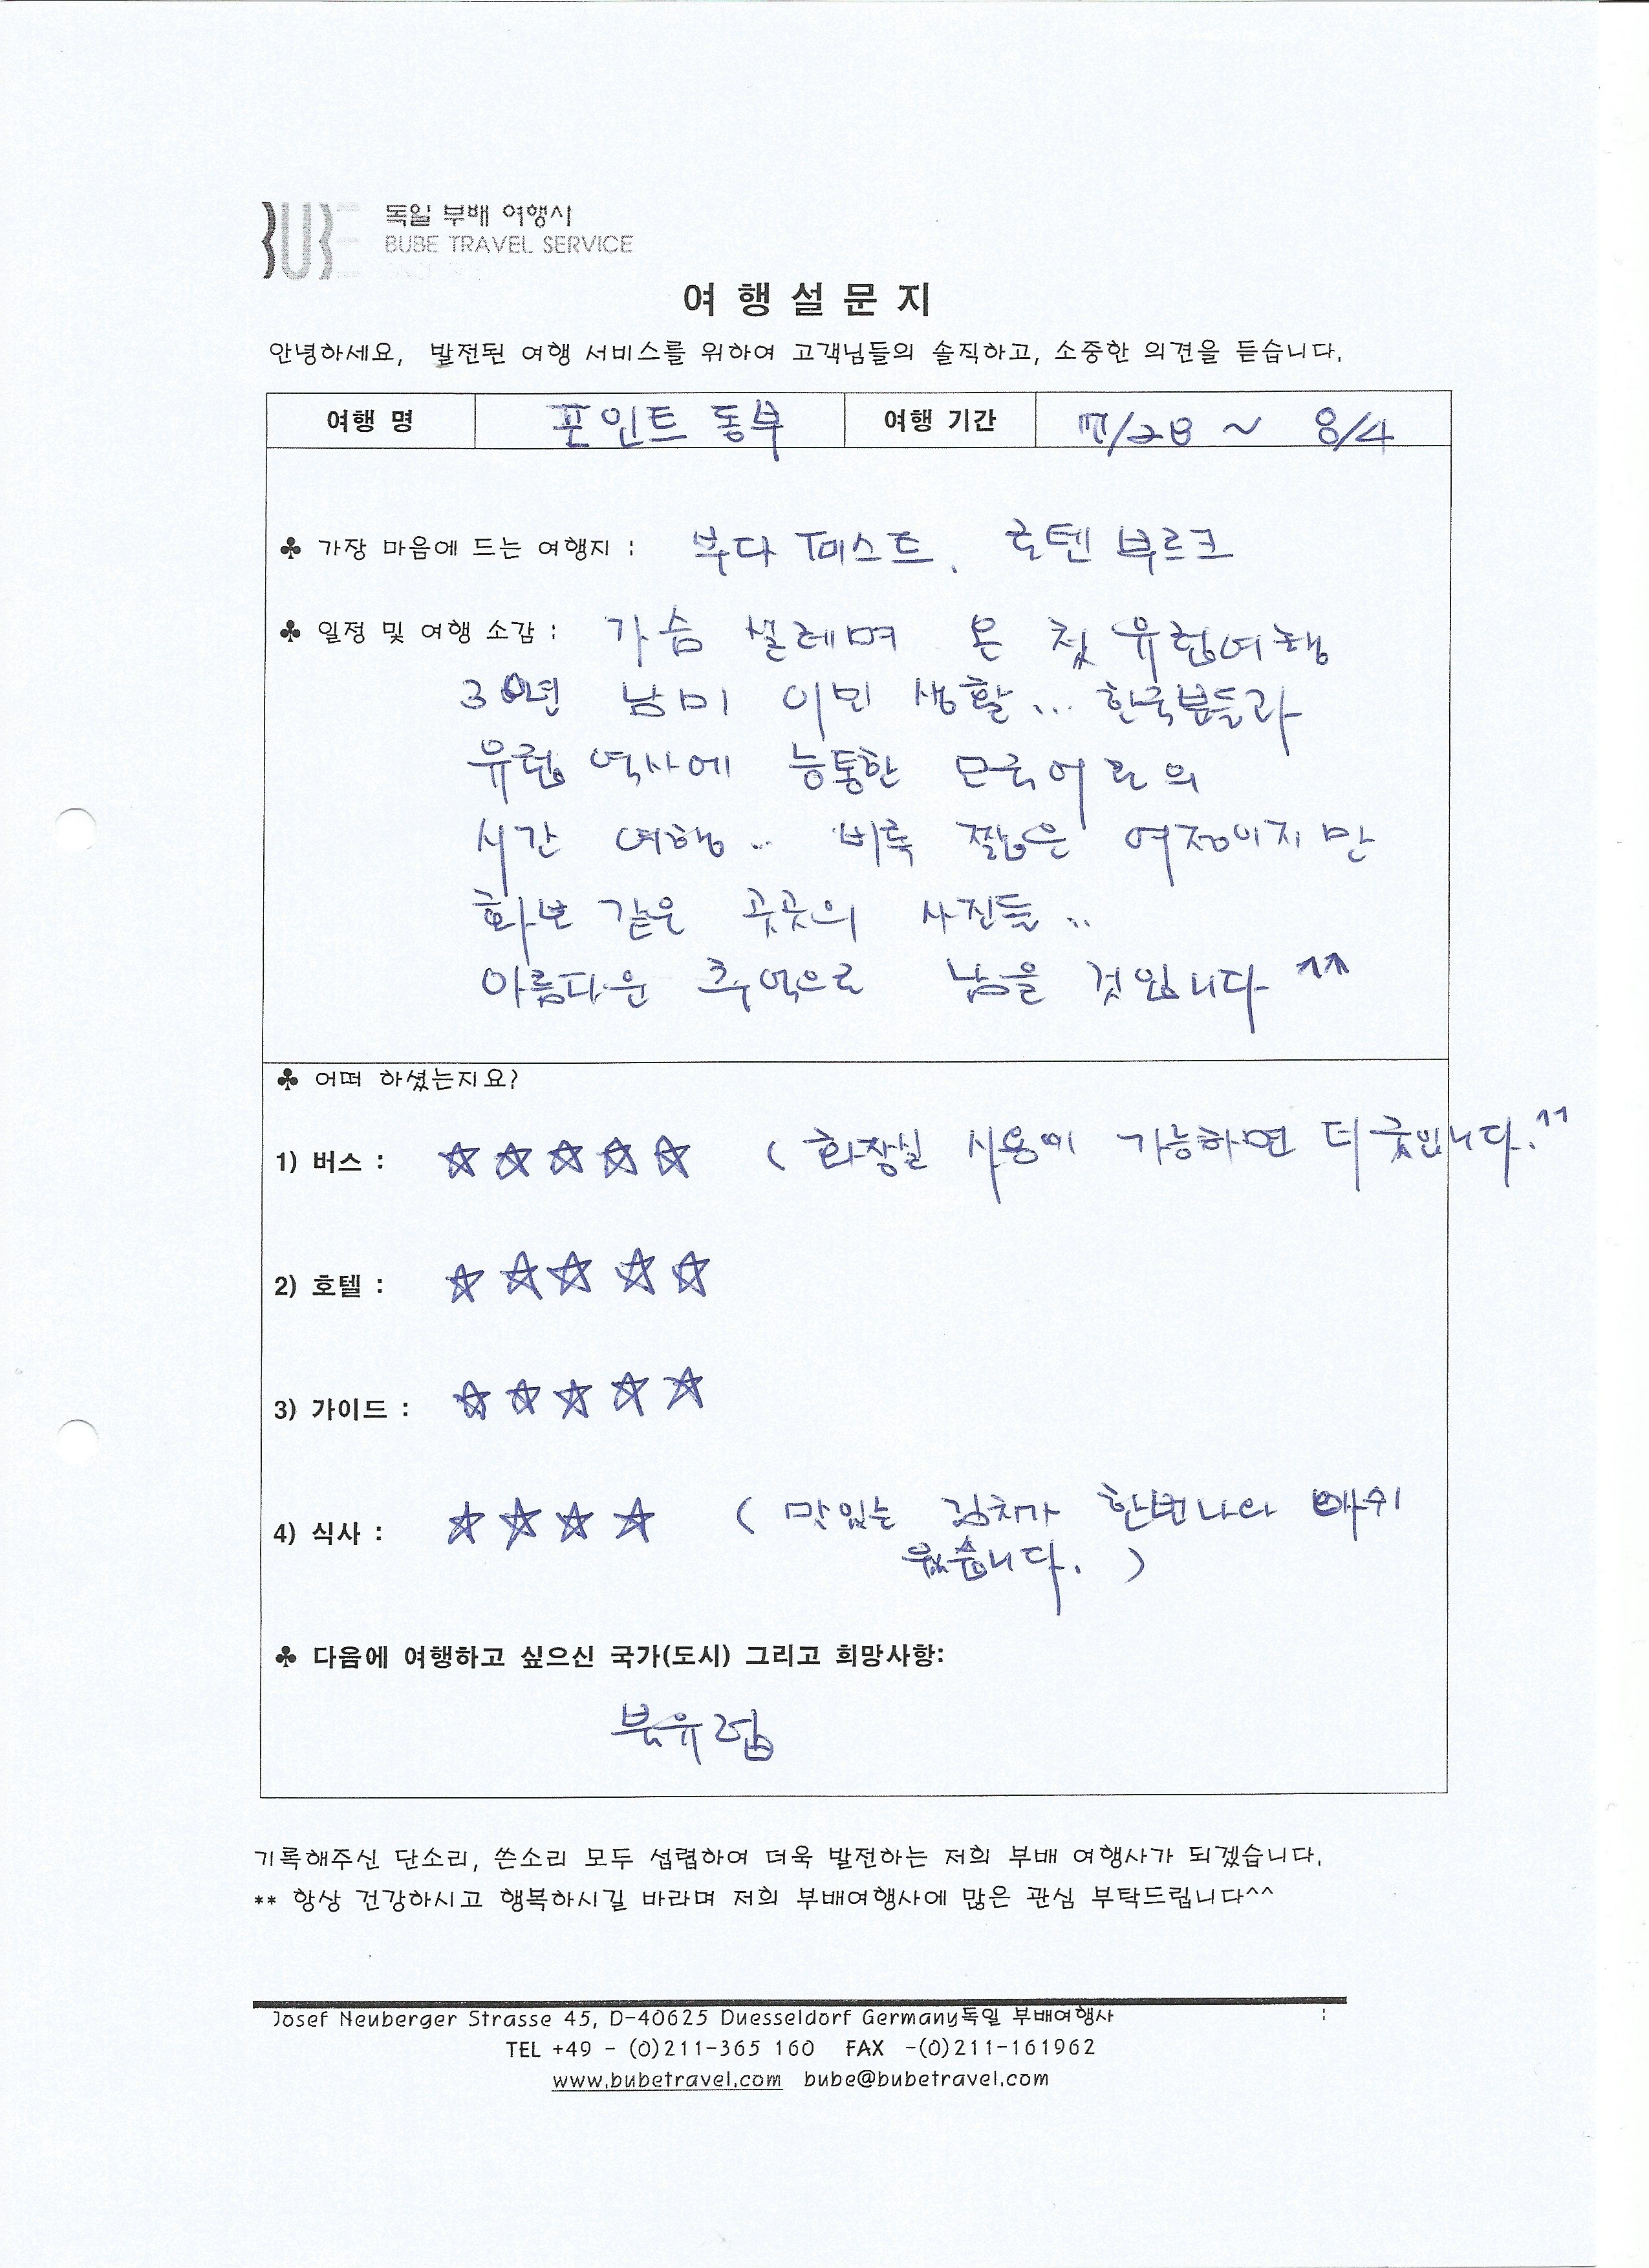 BUBE 독일 부배 여행사
BUBE TRAVEL SERVICE
여 행 설 문 지
안녕하세요, 발전된 여행 서비스를 위하여 고객님들의 솔직하고, 소중한 의견을 듣습니다.
여행 명 포인트 동부 여행 기간 7/28 ~ 8/4
♣ 가장 마음에 드는 여행지 : 부다페스트, 로텐부르크
♣ 일정 및 여행 소감 : 가슴 설레며 온 첫 유럽여행
30년 남미 이민 생활... 한국분들과
유럽 역사에 능통한 모국어로의
시간 여행.. 비록 짧은 여정이지만
화보 같은 곳곳의 사진들..
아름다운 추억으로 남을 것입니다 ^^
♣ 어떠 하셨는지요?
1) 버스 : ☆☆☆☆☆ ( 화장실 사용이 가능하면 더 굿입니다.^^
2) 호텔 : ☆☆☆☆☆
3) 가이드 : ☆☆☆☆☆
4) 식사 : ☆☆☆☆ ( 맛있는 김치가 한번나와 아쉬
웠습니다. )
♣ 다음에 여행하고 싶으신 국가(도시) 그리고 희망사항:
북유럽
기록해주신 단소리, 쓴소리 모두 섭렵하여 더욱 발전하는 저희 부배 여행사가 되겠습니다.
** 항상 건강하시고 행복하시길 바라며 저희 부배여행사에 많은 관심 부탁드립니다^^
Josef Neuberger Strasse 45, D-40625 Duesseldorf Germany독일 부배여행사 :
TEL +49 - (0)211-365 160 FAX -(0)211-161962
www.bubetravel.com bube@bubetravel.com